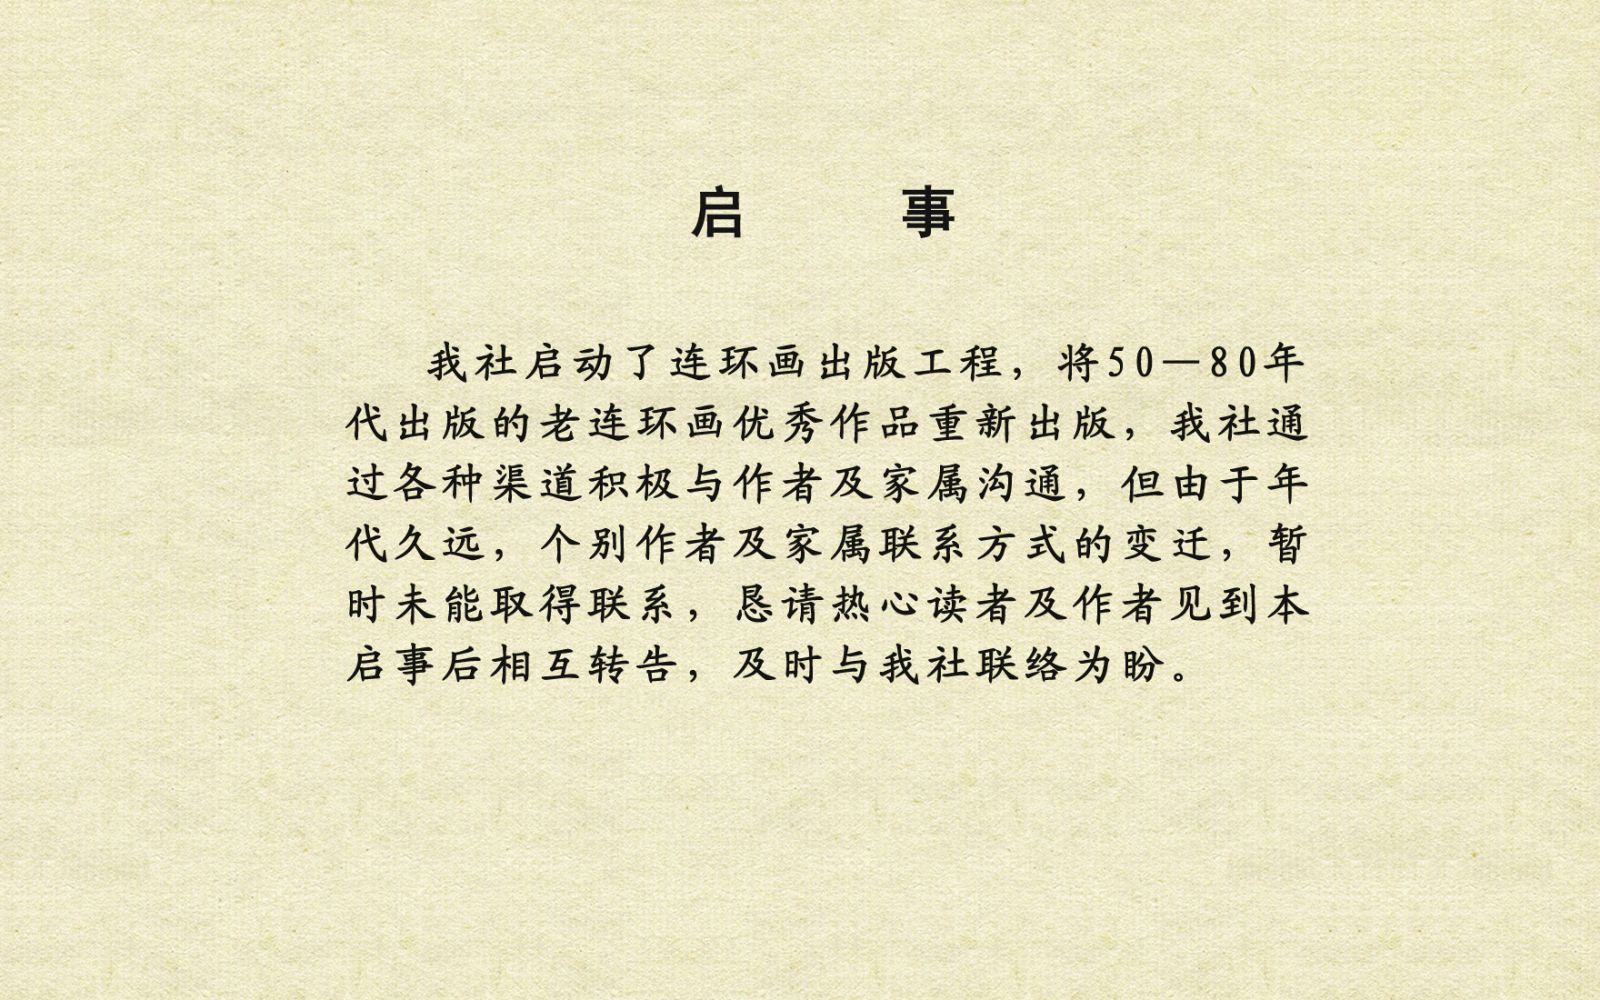 启 事
我社启动了连环画出版工程，将50—80年
代出版的老连环画优秀作品重新出版，我社通
过各种渠道积极与作者及家属沟通，但由于年
代久远，个别作者及家属联系方式的变迁，暂
时未能取得联系，恳请热心读者及作者见到本
启事后相互转告，及时与我社联络为盼。